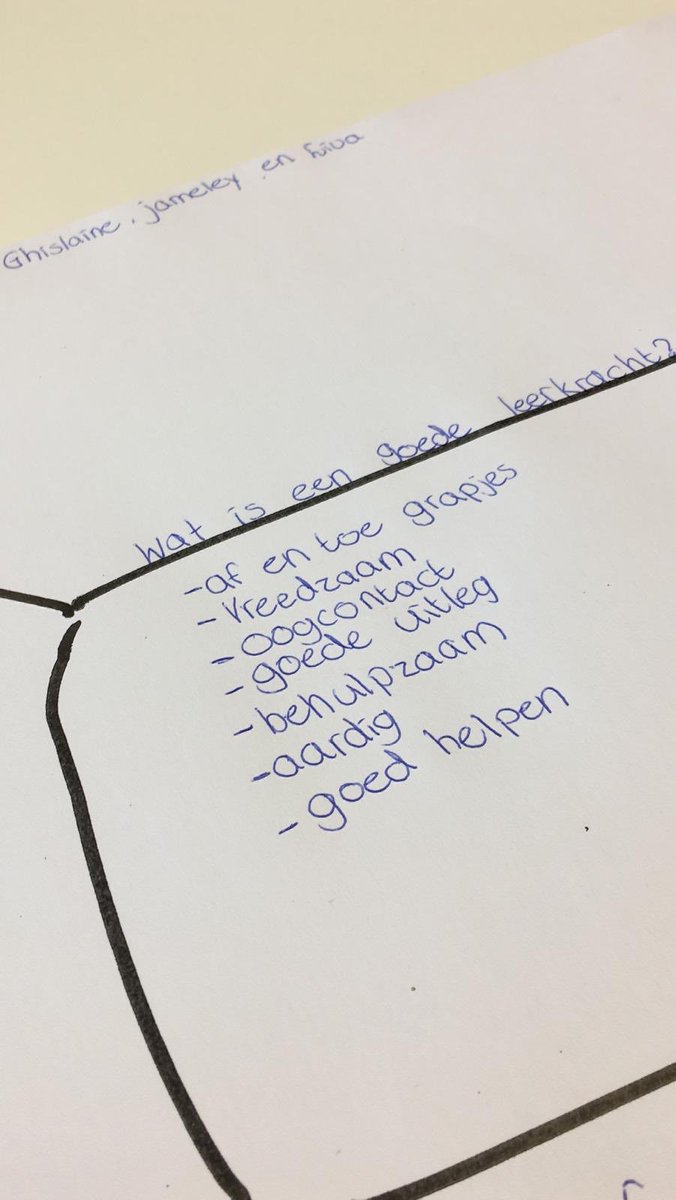 Ghislaine, jameley en
Wat is een goede leerkracht?
-af en toe grapjes
-vreedzaam
-oogcontact
-goede uitleg
-behulpzaam
-aardig
-goed helpen